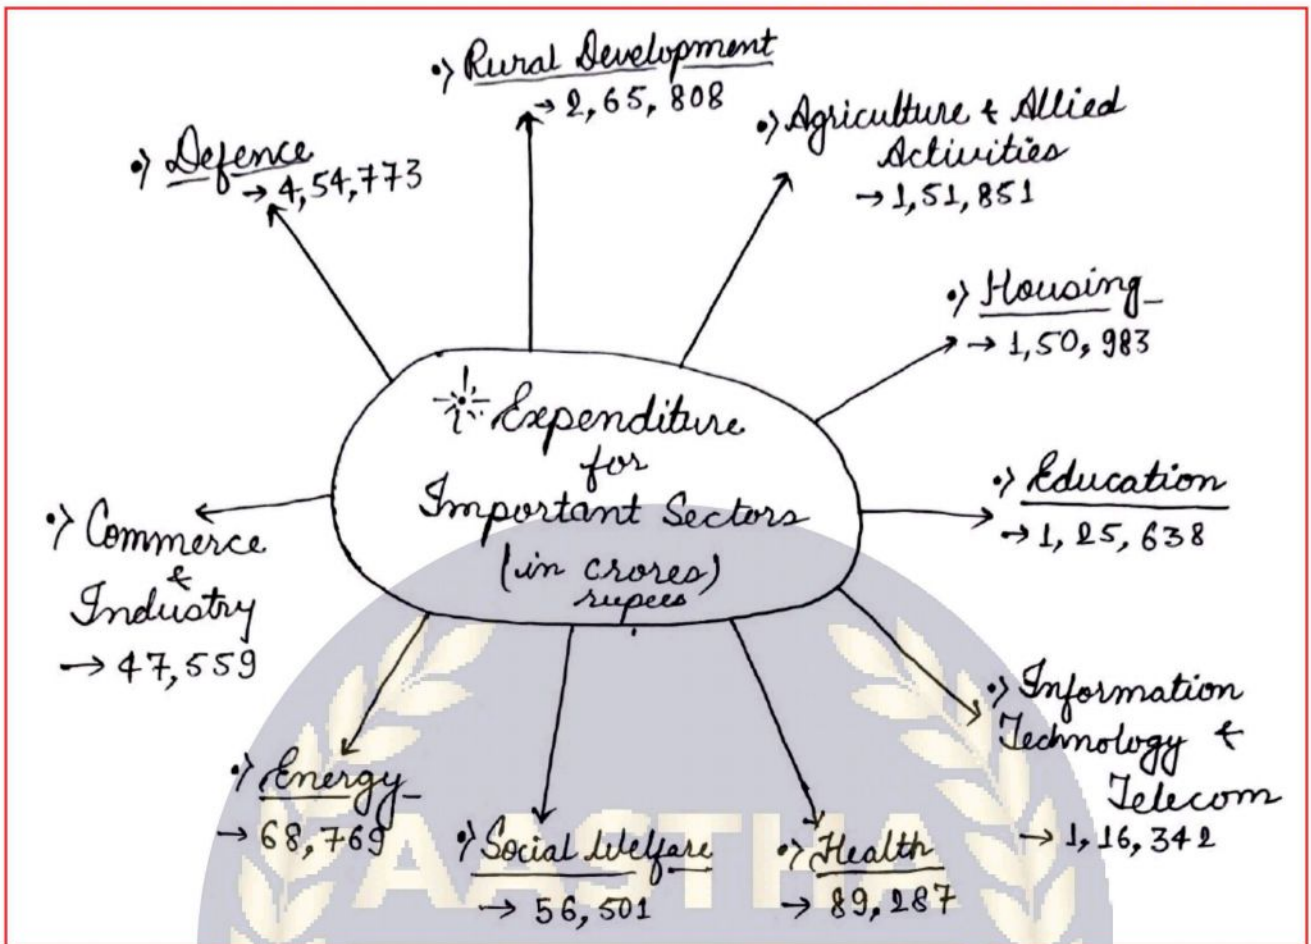 Expenditure
for
Important Sectors
(in crores)
rupees
•> Rural Development
→ 2,65,808
•> Agriculture & Allied
Activities
→ 1,51,851
•> Housing
→ 1,50,983
•> Education
→ 1,25,638
•> Information
Technology &
Telecom
→ 1,16,342
•> Health
→ 89,287
•> Social Welfare
→ 56,501
•> Energy
→ 68,769
•> Commerce
&
Industry
→ 47,559
•> Defence
→ 4,54,773
AASTHA